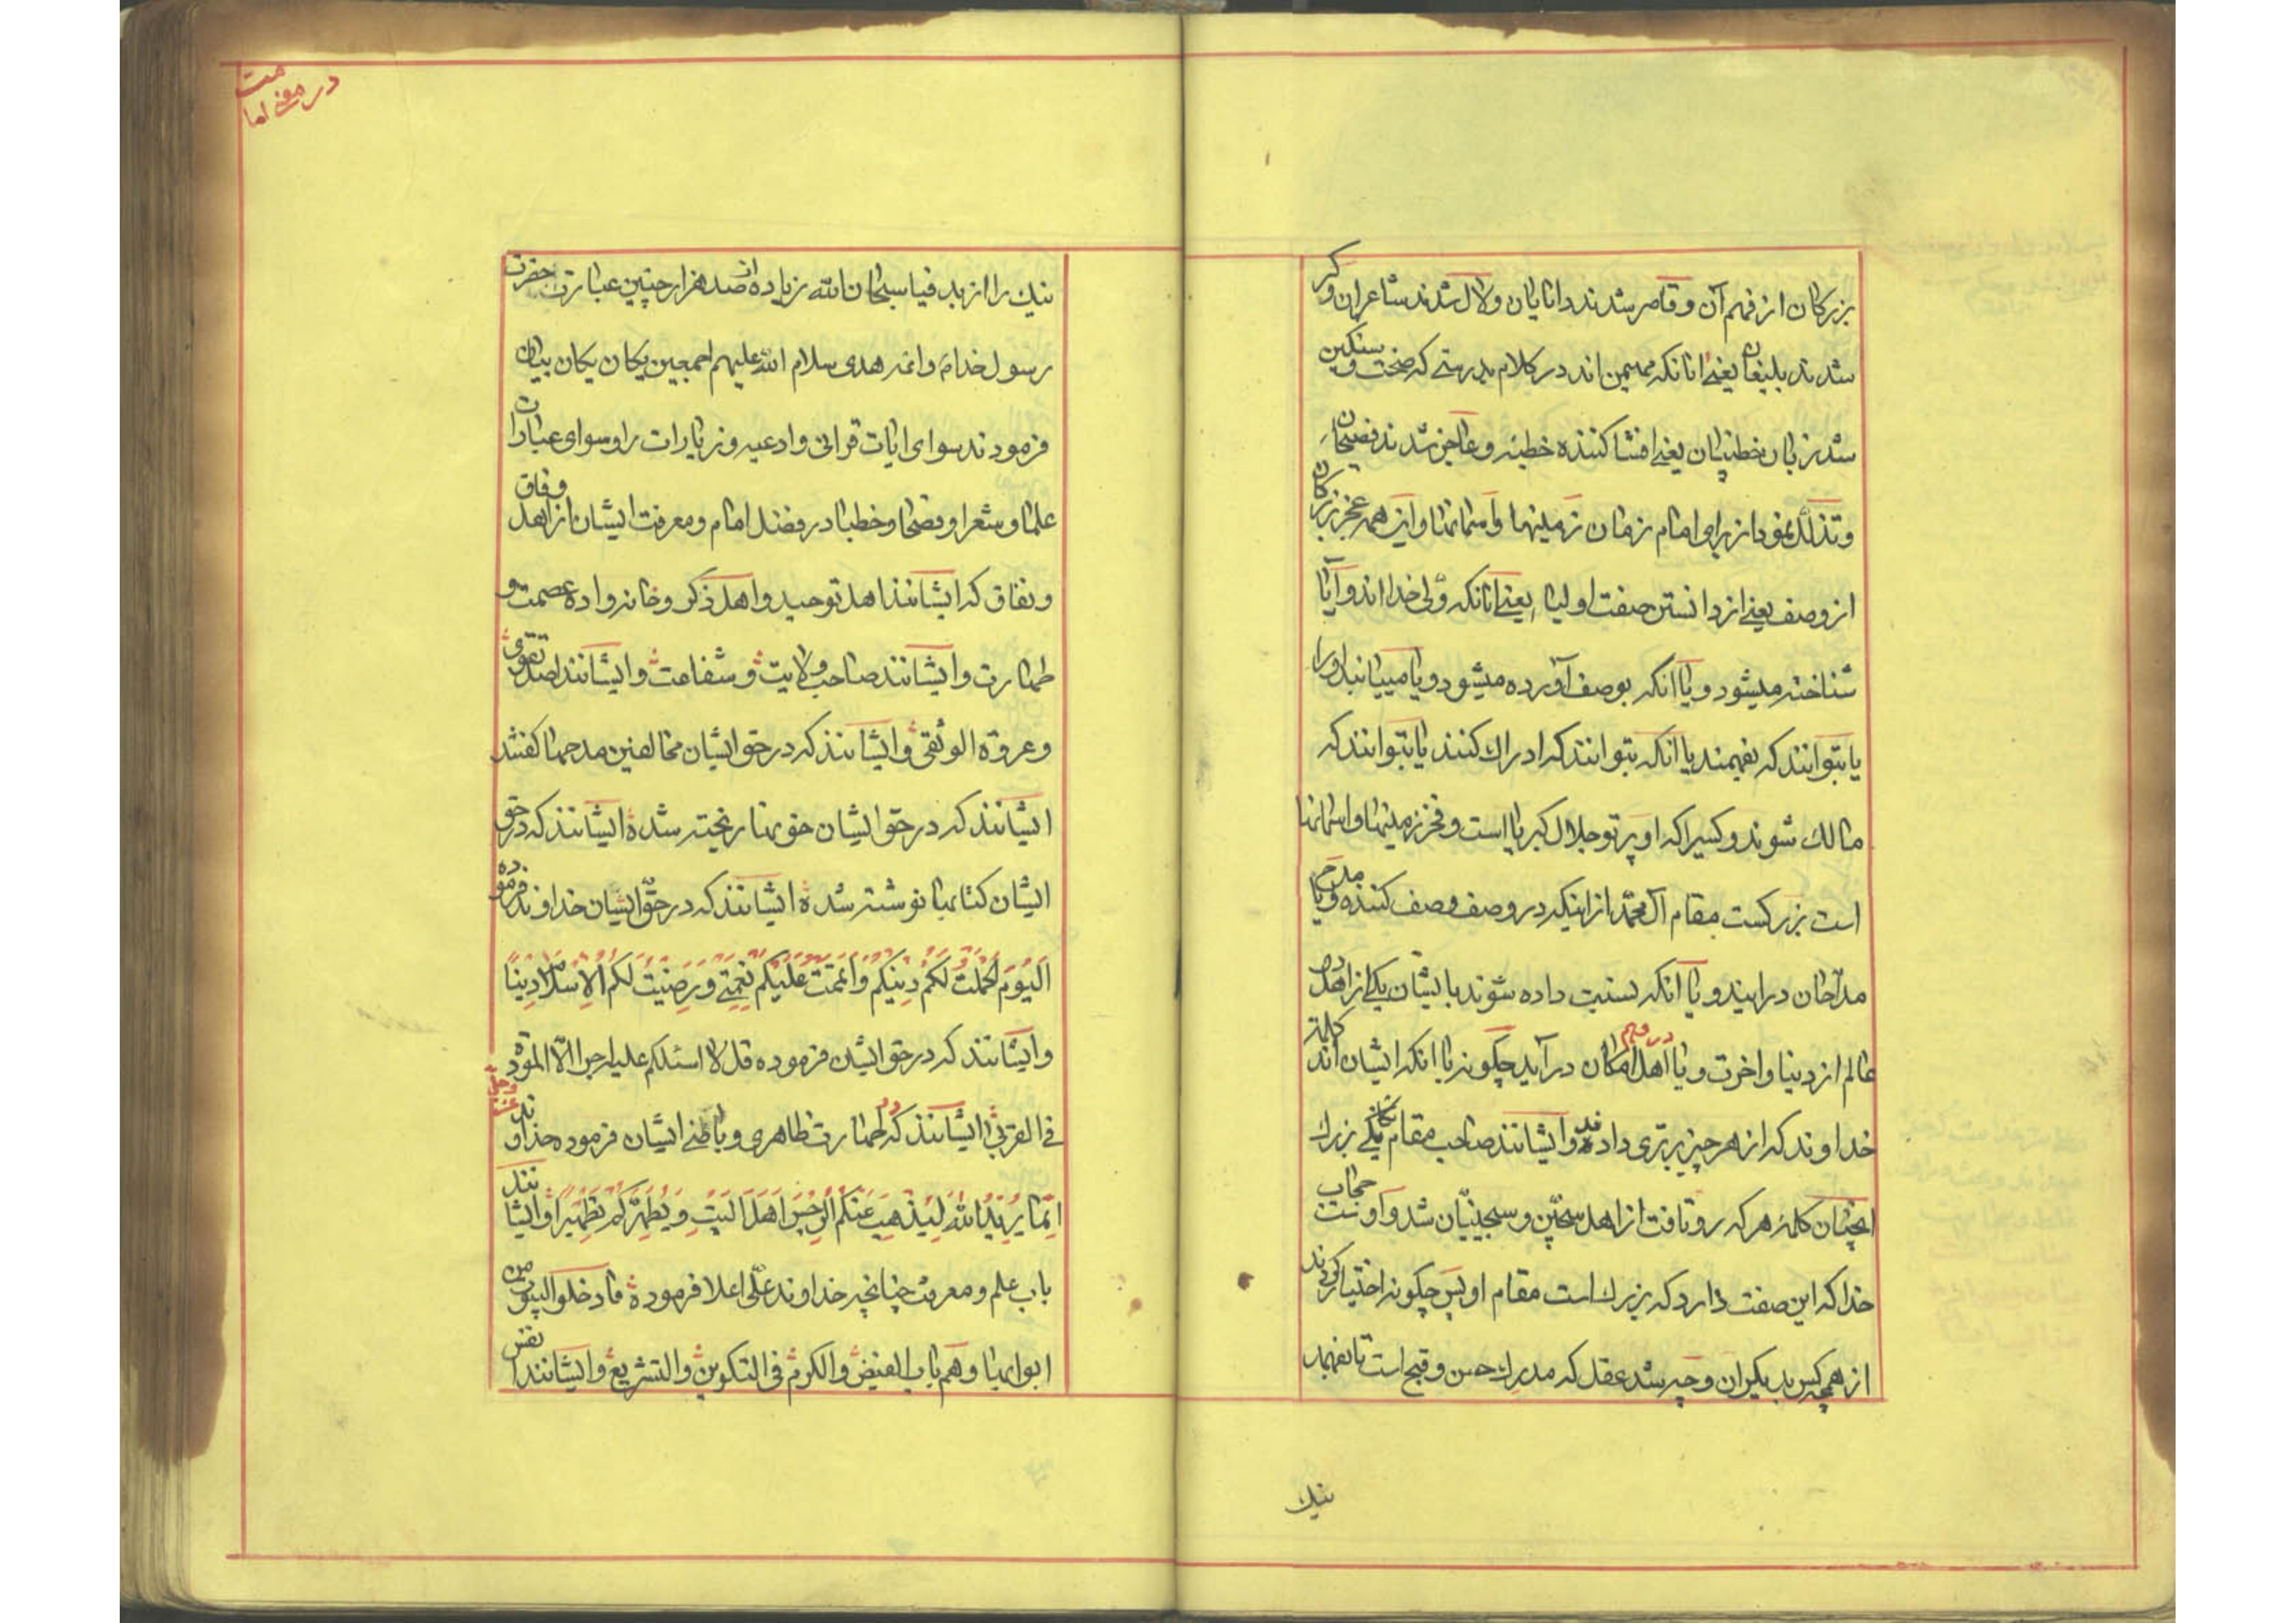 بزرکان از فهم آن و قاصر شدند دانایان و لال شدند شاعران و کر
شدند بلیغان یعنی انانکه مهیمن اند در کلام بدرستی که سخت و سنکین
شد زبان خطیبان یعنی افشا کننده خطبه و عاجز شدند فصیحان
و تذلل نمودن از برای امام زمان زمینها و آسمانها و این همه عجز بزرکان
از وصف یعنی از دانستن صفت اولیا یعنی آنانکه ولی خدا اند و آیا
شناخته میشود و یا انکه بوصف آورده میشود و یا میبیاند او را
یا بتوانند که بفهمند یا انکه بتوانند که ادراك کنند یا بتوانند که
مالك شوند و کسیرا که او پرتو جلال کبریا است و فخر زمینها و اسمانها
است بزرکست مقام آل محمد از اینکه در وصف وصف کننده و یا مدح
مداحان در ایند و یا آنکه نسبت داده شوند بایشان یکی از اهل
عالم از دنیا و اخرت و یا در فهم اهل امکان در آید چکونه یا انکه ایشان اند کلمة
خداوند که از هر چیز برتری داده شد و ایشانند صاحب مقام یکانکی بزرك
انچنان کلمه هر که رو تافت از اهل سجین و سجینیان شد و اوست حجاب
خدا که این صفت دارد که بزرك است مقام او پس چکونه اختیار کردند
از همه کس بدیکران و چه شد عقل که مدرك حسن و قبح است تا بفهمد
نیك
در معرفت امامت
نیك را از بد فیا سبحان الله زیاده از صد هزار چنین عبارت حضرت
رسول خدا و ائمه هدی سلام الله علیهم اجمعین یکان یکان بیان
فرمودند سوای ایات قرانی و ادعیه و زیارات را و سوای عبارات
علما و شعرا و فصحا و خطبا در فضل امام و معرفت ایشان از اهل وفاق
و نفاق که ایشانند اهل توحید و اهل ذکر و خانواده عصمت و
طهارت و ایشانند صاحب ولایت و شفاعت و ایشانند اصل تقوی
و عروة الوثقی و ایشانند که در حق ایشان مخالفین مدحها کفتند
ایشانند که در حق ایشان خونها ریخته شده ایشانند که در حق
ایشان کتابها نوشته شده ایشانند که در حق ایشان خداوند فرموده
اَلیَومَ اَکمَلتُ لَکُم دینَکُم وَاَتمَمتُ عَلَیکُم نِعمَتی وَرَضیتُ لَکُمُ الاِسلامَ دینًا
و ایشانند که در حق ایشان فرموده قل لا اسئلکم علیه اجرا الّا المودة
فی القربی ایشانند که در طهارت ظاهری و باطنی ایشان فرموده خداوند عز و جل
اِنَّما یُریدُ اللهُ لِیُذهِبَ عَنکُمُ الرِّجسَ اَهلَ البَیتِ وَ یُطَهِّرَکُم تَطهیرًا و ایشانند
باب علم و معرفت چنانچه خداوند علی اعلا فرموده فادخلوا البیوت من
ابوابها و هم باب الفیض و الکرم فی التکوین و التشریع و ایشانند نفس